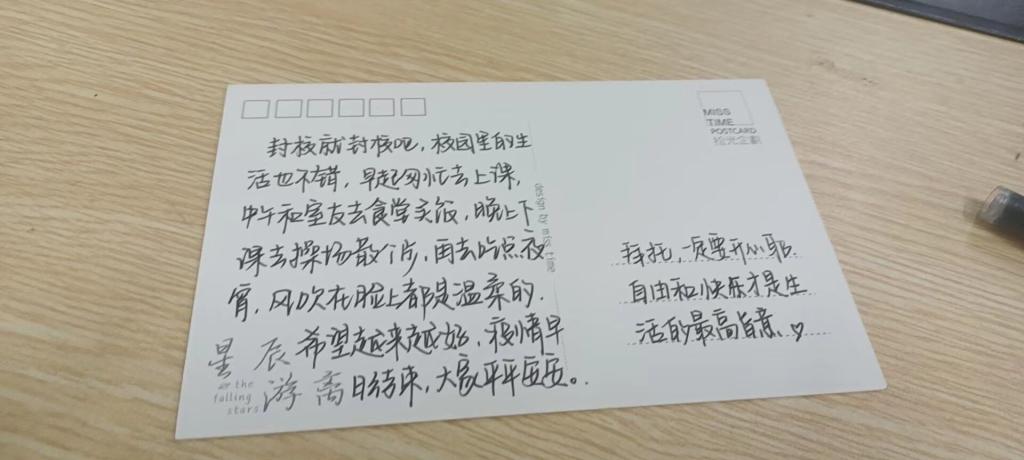 封校就封校吧，校园里的生
活也不错，早起匆忙去上课，
中午和室友去食堂买饭，晚上下
课去操场散个步，再去吃点夜
宵，风吹在脸上都是温柔的.
希望越来越好，疫情早
日结束，大家平平安安。
星辰
游离
or the
falling
stars
design by miss time
MISS
TIME
POSTCARD
拾光企划
拜托，一定要开心耶.
自由和快乐才是生
活的最高旨意.♡